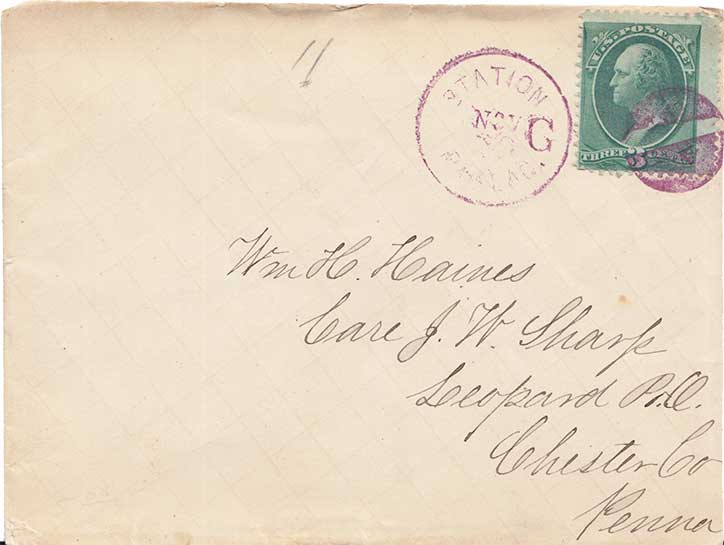 11
STATION
NOV G
PHILADA.
U.S. POSTAGE
THREE 3 CENTS
Wm H. Haines
Care J. W. Sharp
Leopard P.O.
Chester Co
Penna